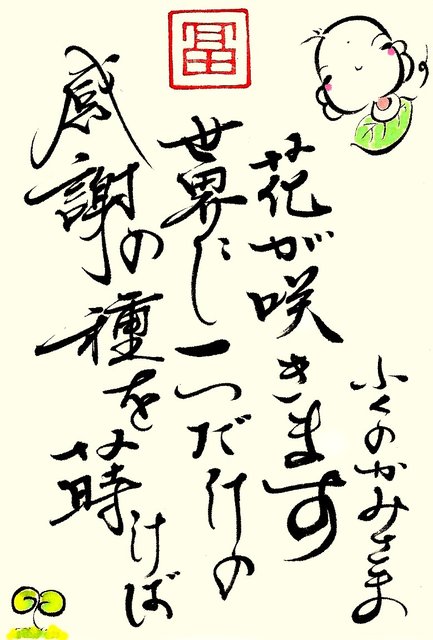 感謝の種を蒔けば
世界に一つだけの
花が咲きます
ふくのかみさま